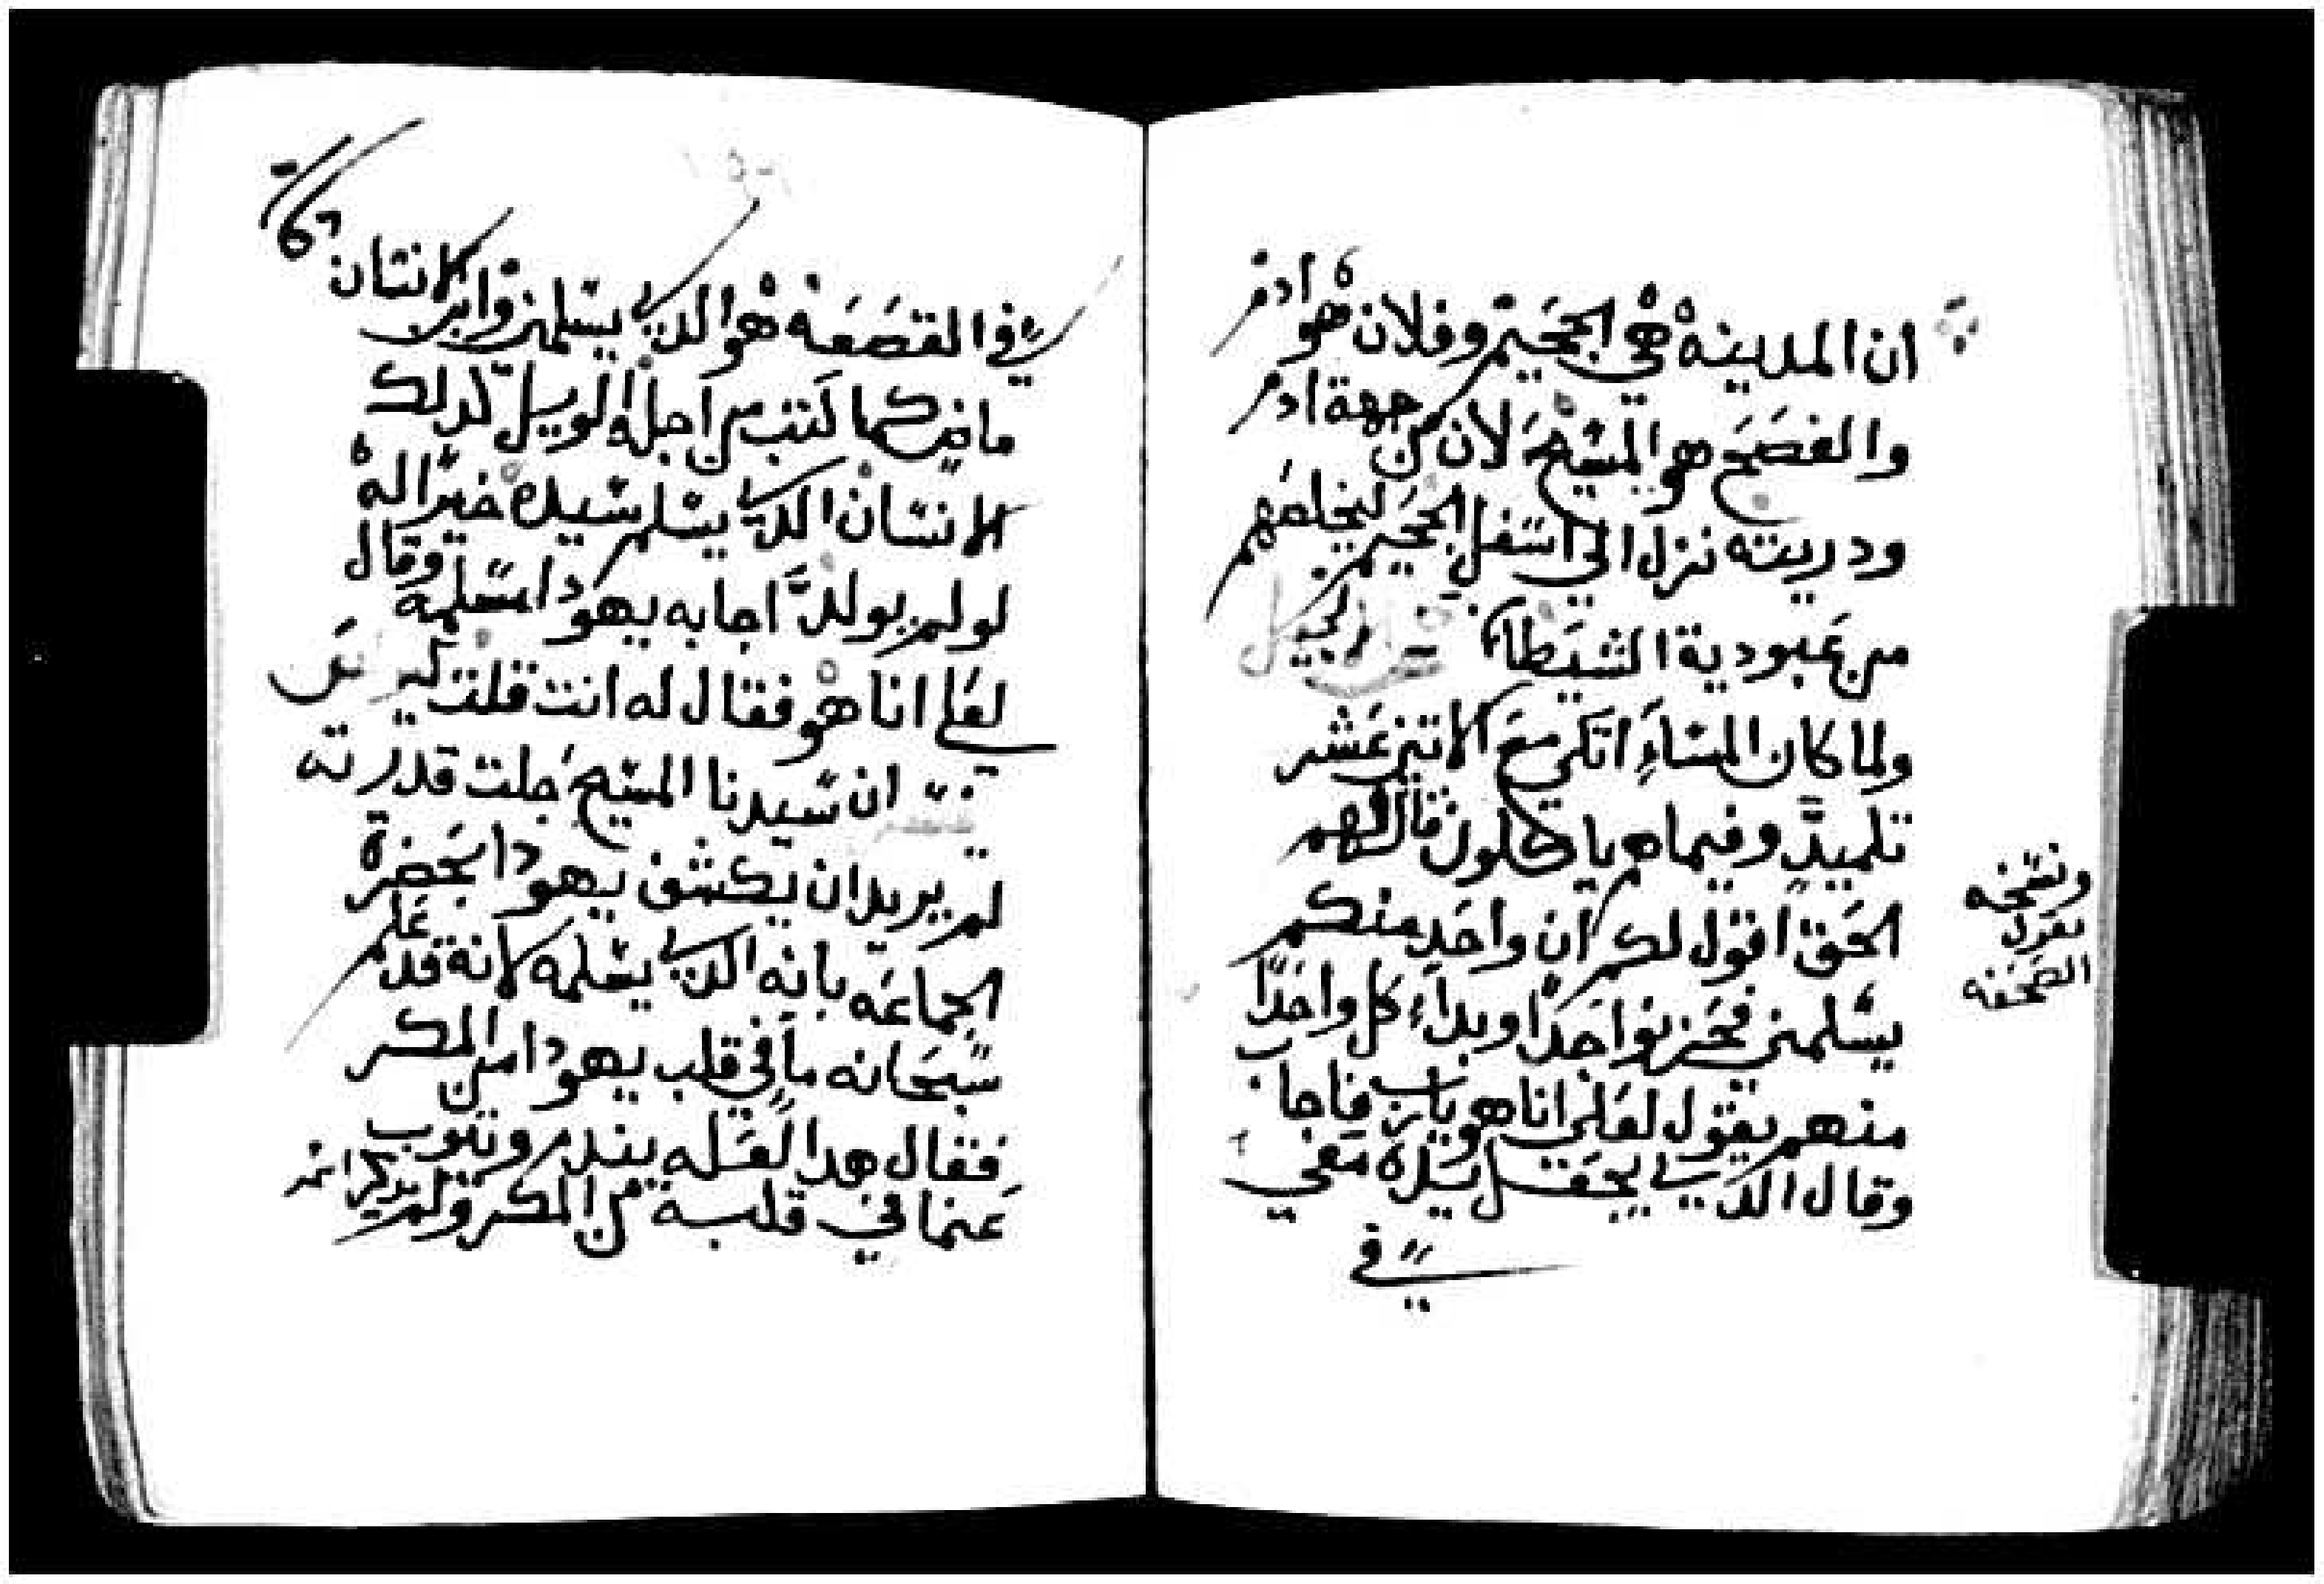 ان المدينه هي الجحيم وفلان هو ادم
والفصح هو المسيح لان من جهة ادم
ودريته نزل الي اسفل الجحيم ليخلصهم
من عبودية الشيطان
ولما كان المساء اتكي مع الاتني عشر
تلميد وفيما هم ياكلون قال لهم
الحق اقول لكم ان واحد منكم
يسلمني فحزنوا جدا وبداء كل واحدا
منهم يقول لعلي انا هو يارب فاجاب
وقال الدي يجعل يده معي
في
ونسخه
تقول
الصحفه
في القصعه هو الدي يسلمني وابن الانسان
ماضي كما كتب من اجله الويل لدلك
الانسان الدي يسلم سيده خيرا له
لو لم يولد اجابه يهودا مسلمه وقال
لعلي انا هو فقال له انت قلت
تفسير ان سيدنا المسيح جلت قدرته
لم يريد ان يكشف يهودا بحضرة
الجماعه بانه الدي يسلمه لانه قد علم
سبحانه ما في قلب يهودا من المكر
فقال هدا لعله يندم ويتوب
عنما في قلبه من المكر ولم يدكر اسمه